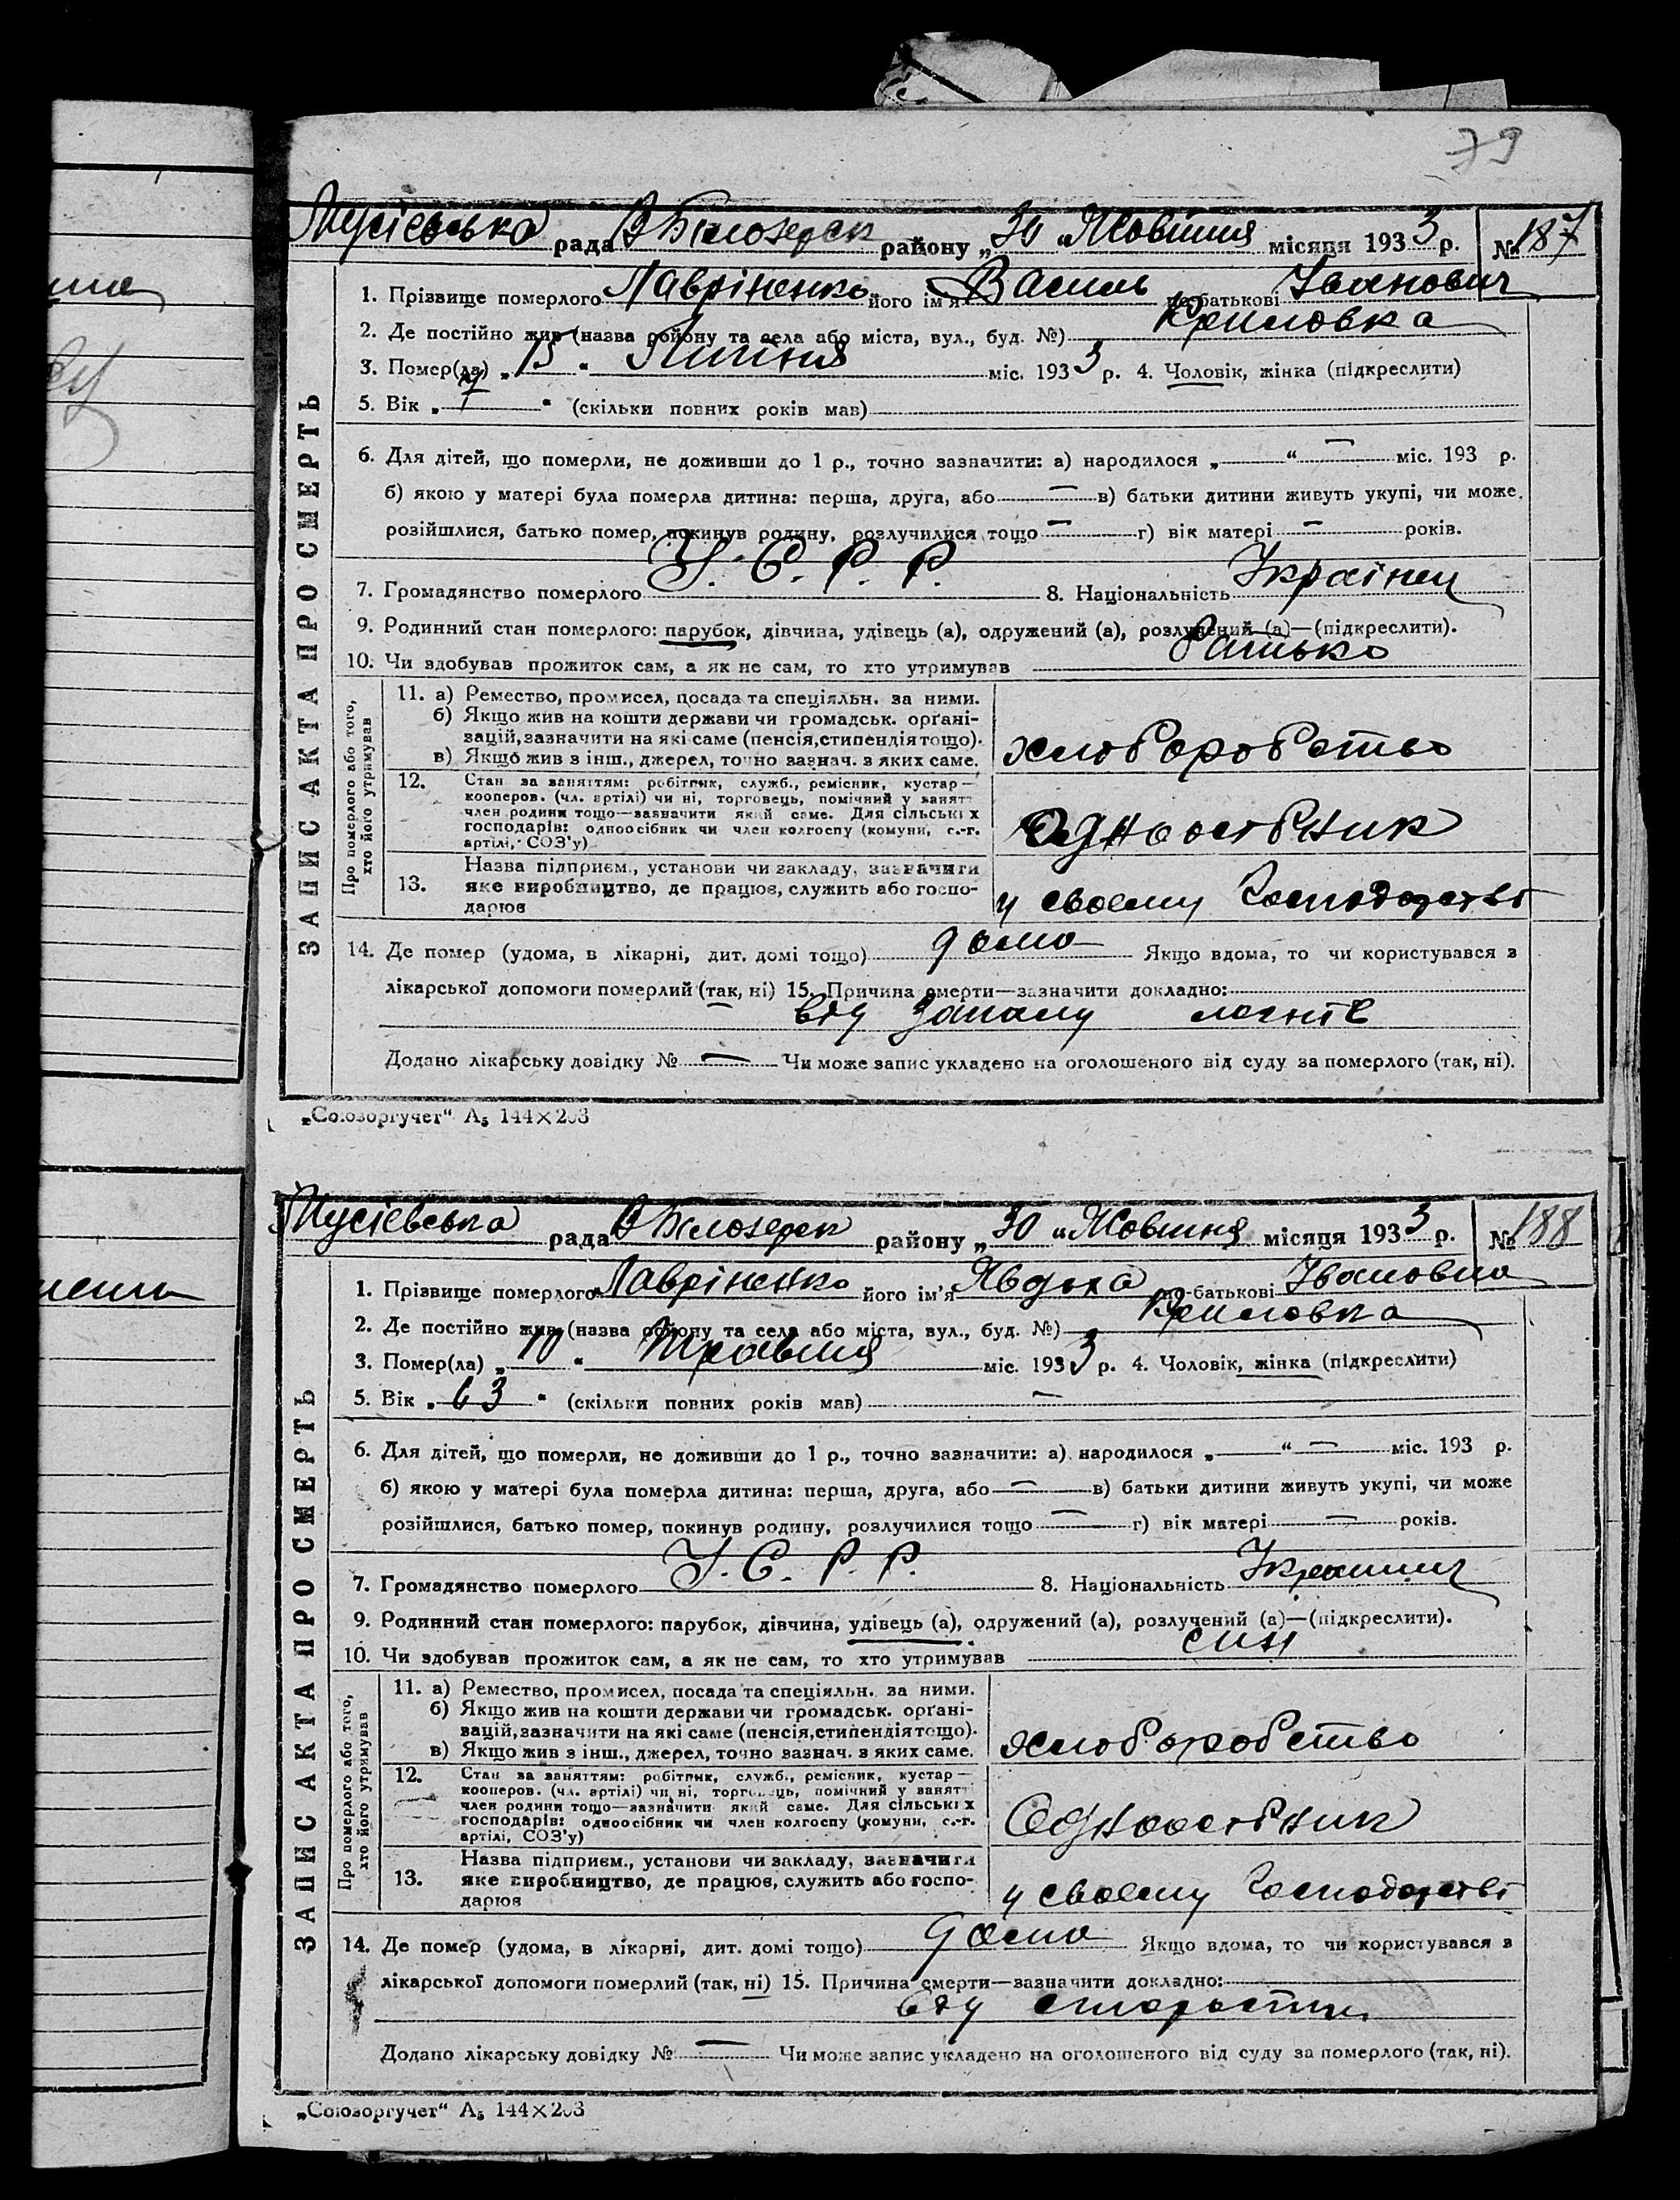 79
Мусіевська рада В Білозерск району „30“ Жовтня місяця 1933 р. № 187
1. Прізвище померлого Лавріненко його ім'я Василь по-батькові Іванович
2. Де постійно жив (назва району та села або міста, вул., буд. №) Криловка
3. Помер(ла) „15“ Липня міс. 1933 р. 4. Чоловік, жінка (підкреслити)
5. Вік „ “ (скільки повних років мав)
6. Для дітей, що померли, не доживши до 1 р., точно зазначити: а) народилося „ “ — міс. 193 р.
б) якою у матері була померла дитина: перша, друга, або — в) батьки дитини живуть укупі, чи може,
розійшлися, батько помер, покинув родину, розлучилися тощо — г) вік матері — років.
7. Громадянство померлого У. С. Р. Р. 8. Національність Українец
9. Родинний стан померлого: парубок, дівчина, удівець (а), одружений (а), розлучений (а)—(підкреслити).
10. Чи здобував прожиток сам, а як не сам, то хто утримував батько
ЗАПИС АКТА ПРО СМЕРТЬ
Про померлого або того, хто його утримував
11. а) Ремество, промисел, посада та спеціяльн. за ними.
б) Якщо жив на кошти держави чи громадськ. орґані-
зацій, зазначити на які саме (пенсія, стипендія тощо).
в) Якщо жив з інш., джерел, точно зазнач. з яких саме.
хлоборобство
12. Стан за заняттям: робітник, служб., ремісник, кустар—
кооперов. (чл. артілі) чи ні, торговець, помічний у занятт
член родини тощо—зазначити який саме. Для сільських
господарів: одноосібник чи член колгоспу (комуни, с.-г.
артілі, СОЗ'у)
Одноосібник
13. Назва підприєм., установи чи закладу, зазначити
яке виробництво, де працює, служить або госпо-
дарює
у своему господарстві
14. Де помер (удома, в лікарні, дит. домі тощо) дома Якщо вдома, то чи користувався з
лікарської допомоги померлий (так, ні) 15. Причина смерти—зазначити докладно:
від запалу легнів
Додано лікарську довідку № — Чи може запис укладено на оголошеного від суду за померлого (так, ні).
„Союзоргучет“ А5 144×203
Мусієвська рада В Білозерск району „30“ Жовтня місяця 1933 р. № 188
1. Прізвище померлого Лавріненко його ім'я Явдоха по-батькові Івановна
2. Де постійно жив (назва району та села або міста, вул., буд. №) Криловка
3. Помер(ла) „10“ Травня міс. 1933 р. 4. Чоловік, жінка (підкреслити)
5. Вік „63“ (скільки повних років мав) —
6. Для дітей, що померли, не доживши до 1 р., точно зазначити: а) народилося „ “ — міс. 193 р.
б) якою у матері була померла дитина: перша, друга, або — в) батьки дитини живуть укупі, чи може
розійшлися, батько помер, покинув родину, розлучилися тощо — г) вік матері — років.
7. Громадянство померлого У. С. Р. Р. 8. Національність
9. Родинний стан померлого: парубок, дівчина, удівець (а), одружений (а), розлучений (а)—(підкреслити).
10. Чи здобував прожиток сам, а як не сам, то хто утримував син
ЗАПИС АКТА ПРО СМЕРТЬ
Про померлого або того, хто його утримував
11. а) Ремество, промисел, посада та спеціяльн. за ними.
б) Якщо жив на кошти держави чи громадськ. орґані-
зацій, зазначити на які саме (пенсія, стипендія тощо).
в) Якщо жив з інш., джерел, точно зазнач. з яких саме.
хлоборобство
12. Стан за заняттям: робітник, служб., ремісник, кустар—
кооперов. (чл. артілі) чи ні, торговець, помічний у занятт
член родини тощо—зазначити який саме. Для сільських
господарів: одноосібник чи член колгоспу (комуни, с.-г.
артілі, СОЗ'у)
Одноосібник
13. Назва підприєм., установи чи закладу, зазначити
яке виробництво, де працює, служить або госпо-
дарює
у своему господарстві
14. Де помер (удома, в лікарні, дит. домі тощо) дома Якщо вдома, то чи користувався з
лікарської допомоги померлий (так, ні) 15. Причина смерти—зазначити докладно:
від старости
Додано лікарську довідку № — Чи може запис укладено на оголошеного від суду за померлого (так, ні).
„Союзоргучет“ А5 144×203